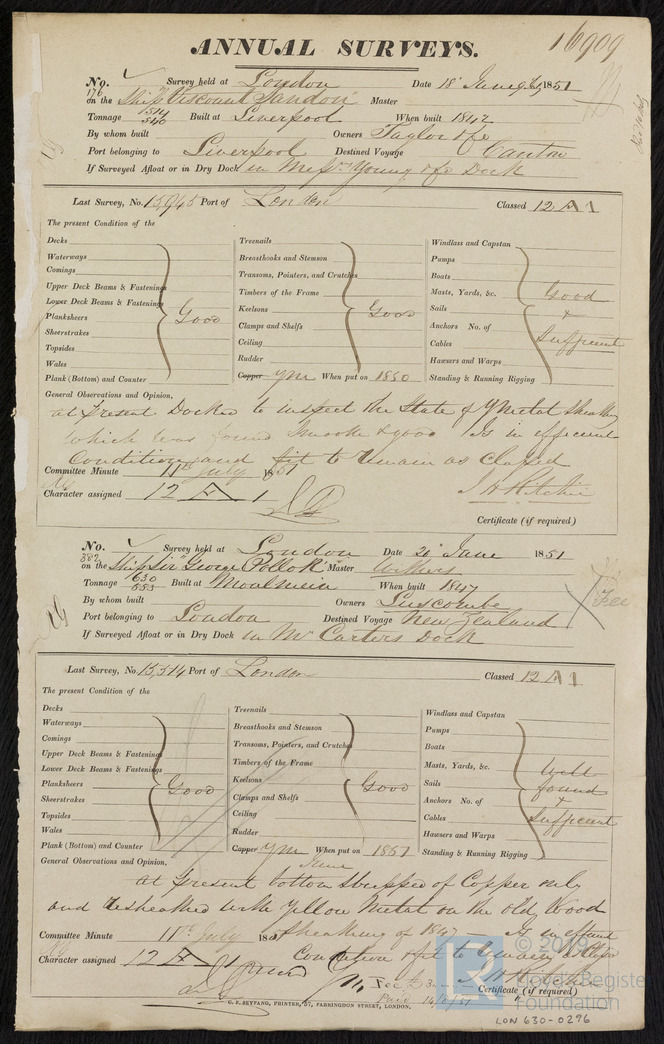 16909
ANNUAL SURVEYS.
No. 176 Survey held at London Date 18 June 1851
on the Ship Viscount Sandon Master
Tonnage 514 540 Built at Liverpool When built 1842
By whom built Owners Taylor & Co
Port belonging to Liverpool Destined Voyage Canton
If Surveyed Afloat or in Dry Dock in Messrs Young & Co Dock
Last Survey, No. 15,945 Port of London Classed 12 A1
The present Condition of the
Decks
Waterways
Comings
Upper Deck Beams & Fastenings
Lower Deck Beams & Fastenings
Planksheers
Sheerstrakes
Topsides
Wales
Plank (Bottom) and Counter
Good
Treenails
Breasthooks and Stemson
Transoms, Pointers, and Crutches
Timbers of the Frame
Keelsons
Clamps and Shelfs
Ceiling
Rudder
Copper YM When put on 1850
Good
Windlass and Capstan
Pumps
Boats
Masts, Yards, &c.
Sails
Anchors No. of
Cables
Hawsers and Warps
Standing & Running Rigging
Good
&
Sufficient
General Observations and Opinion,
at present Docked to inspect the State of Y Metal Sheathg
which was found Smooth & good Is in efficient
Condition and fit to remain as Classed
Committee Minute 11th July 1851
Character assigned 12 A 1
J H Ritchie
Certificate (if required)
No. 382 Survey held at London Date 20 June 1851
on the Ship Sir George Pollok Master Withers
Tonnage 630 583 Built at Moulmein When built 1847
By whom built Owners Luscombe
Port belonging to London Destined Voyage New Zealand
If Surveyed Afloat or in Dry Dock in Mr Carters Dock
Fee
Last Survey, No. 15,514 Port of London Classed 12 A1
The present Condition of the
Decks
Waterways
Comings
Upper Deck Beams & Fastenings
Lower Deck Beams & Fastenings
Planksheers
Sheerstrakes
Topsides
Wales
Plank (Bottom) and Counter
Good
Treenails
Breasthooks and Stemson
Transoms, Pointers, and Crutches
Timbers of the Frame
Keelsons
Clamps and Shelfs
Ceiling
Rudder
Copper YM When put on 1851
June
Good
Windlass and Capstan
Pumps
Boats
Masts, Yards, &c.
Sails
Anchors No. of
Cables
Hawsers and Warps
Standing & Running Rigging
Well
found
&
Sufficient
General Observations and Opinion,
at present bottom stripped of Copper only
and resheathed with Yellow Metal on the old Wood
sheathing of 1847 — Is in efficient
Condition & fit to remain as Class
Committee Minute 11th July 1851
Character assigned 12 A 1
Fee
Certificate (if required)
C. F. SEYFANG, PRINTER, 57, FARRINGDON STREET, LONDON.
© 2019
Lloyd's Register
Foundation
LON 630-0276